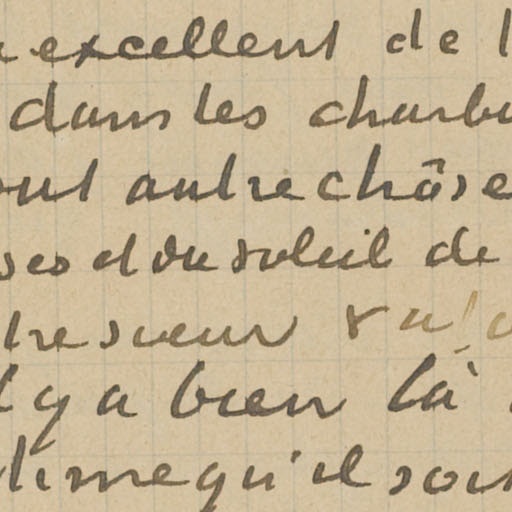 excellent de l
dans les charbo
out autre chôse
ses et du soleil de
tre sueur
l y a bien là
time qu'il soit